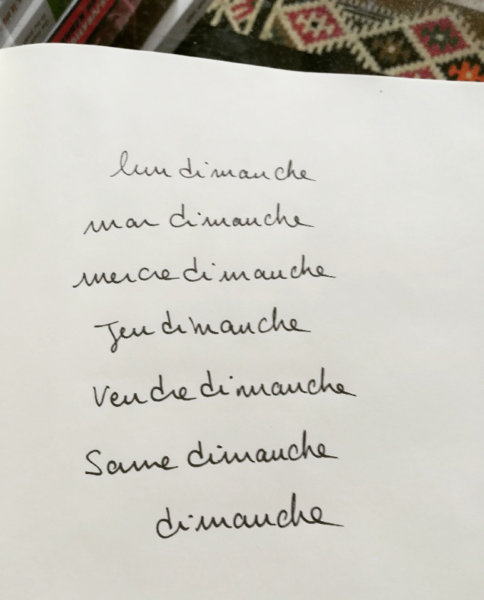 lun dimanche
mar dimanche
mercre dimanche
Jeu dimanche
Vendre dimanche
Same dimanche
dimanche